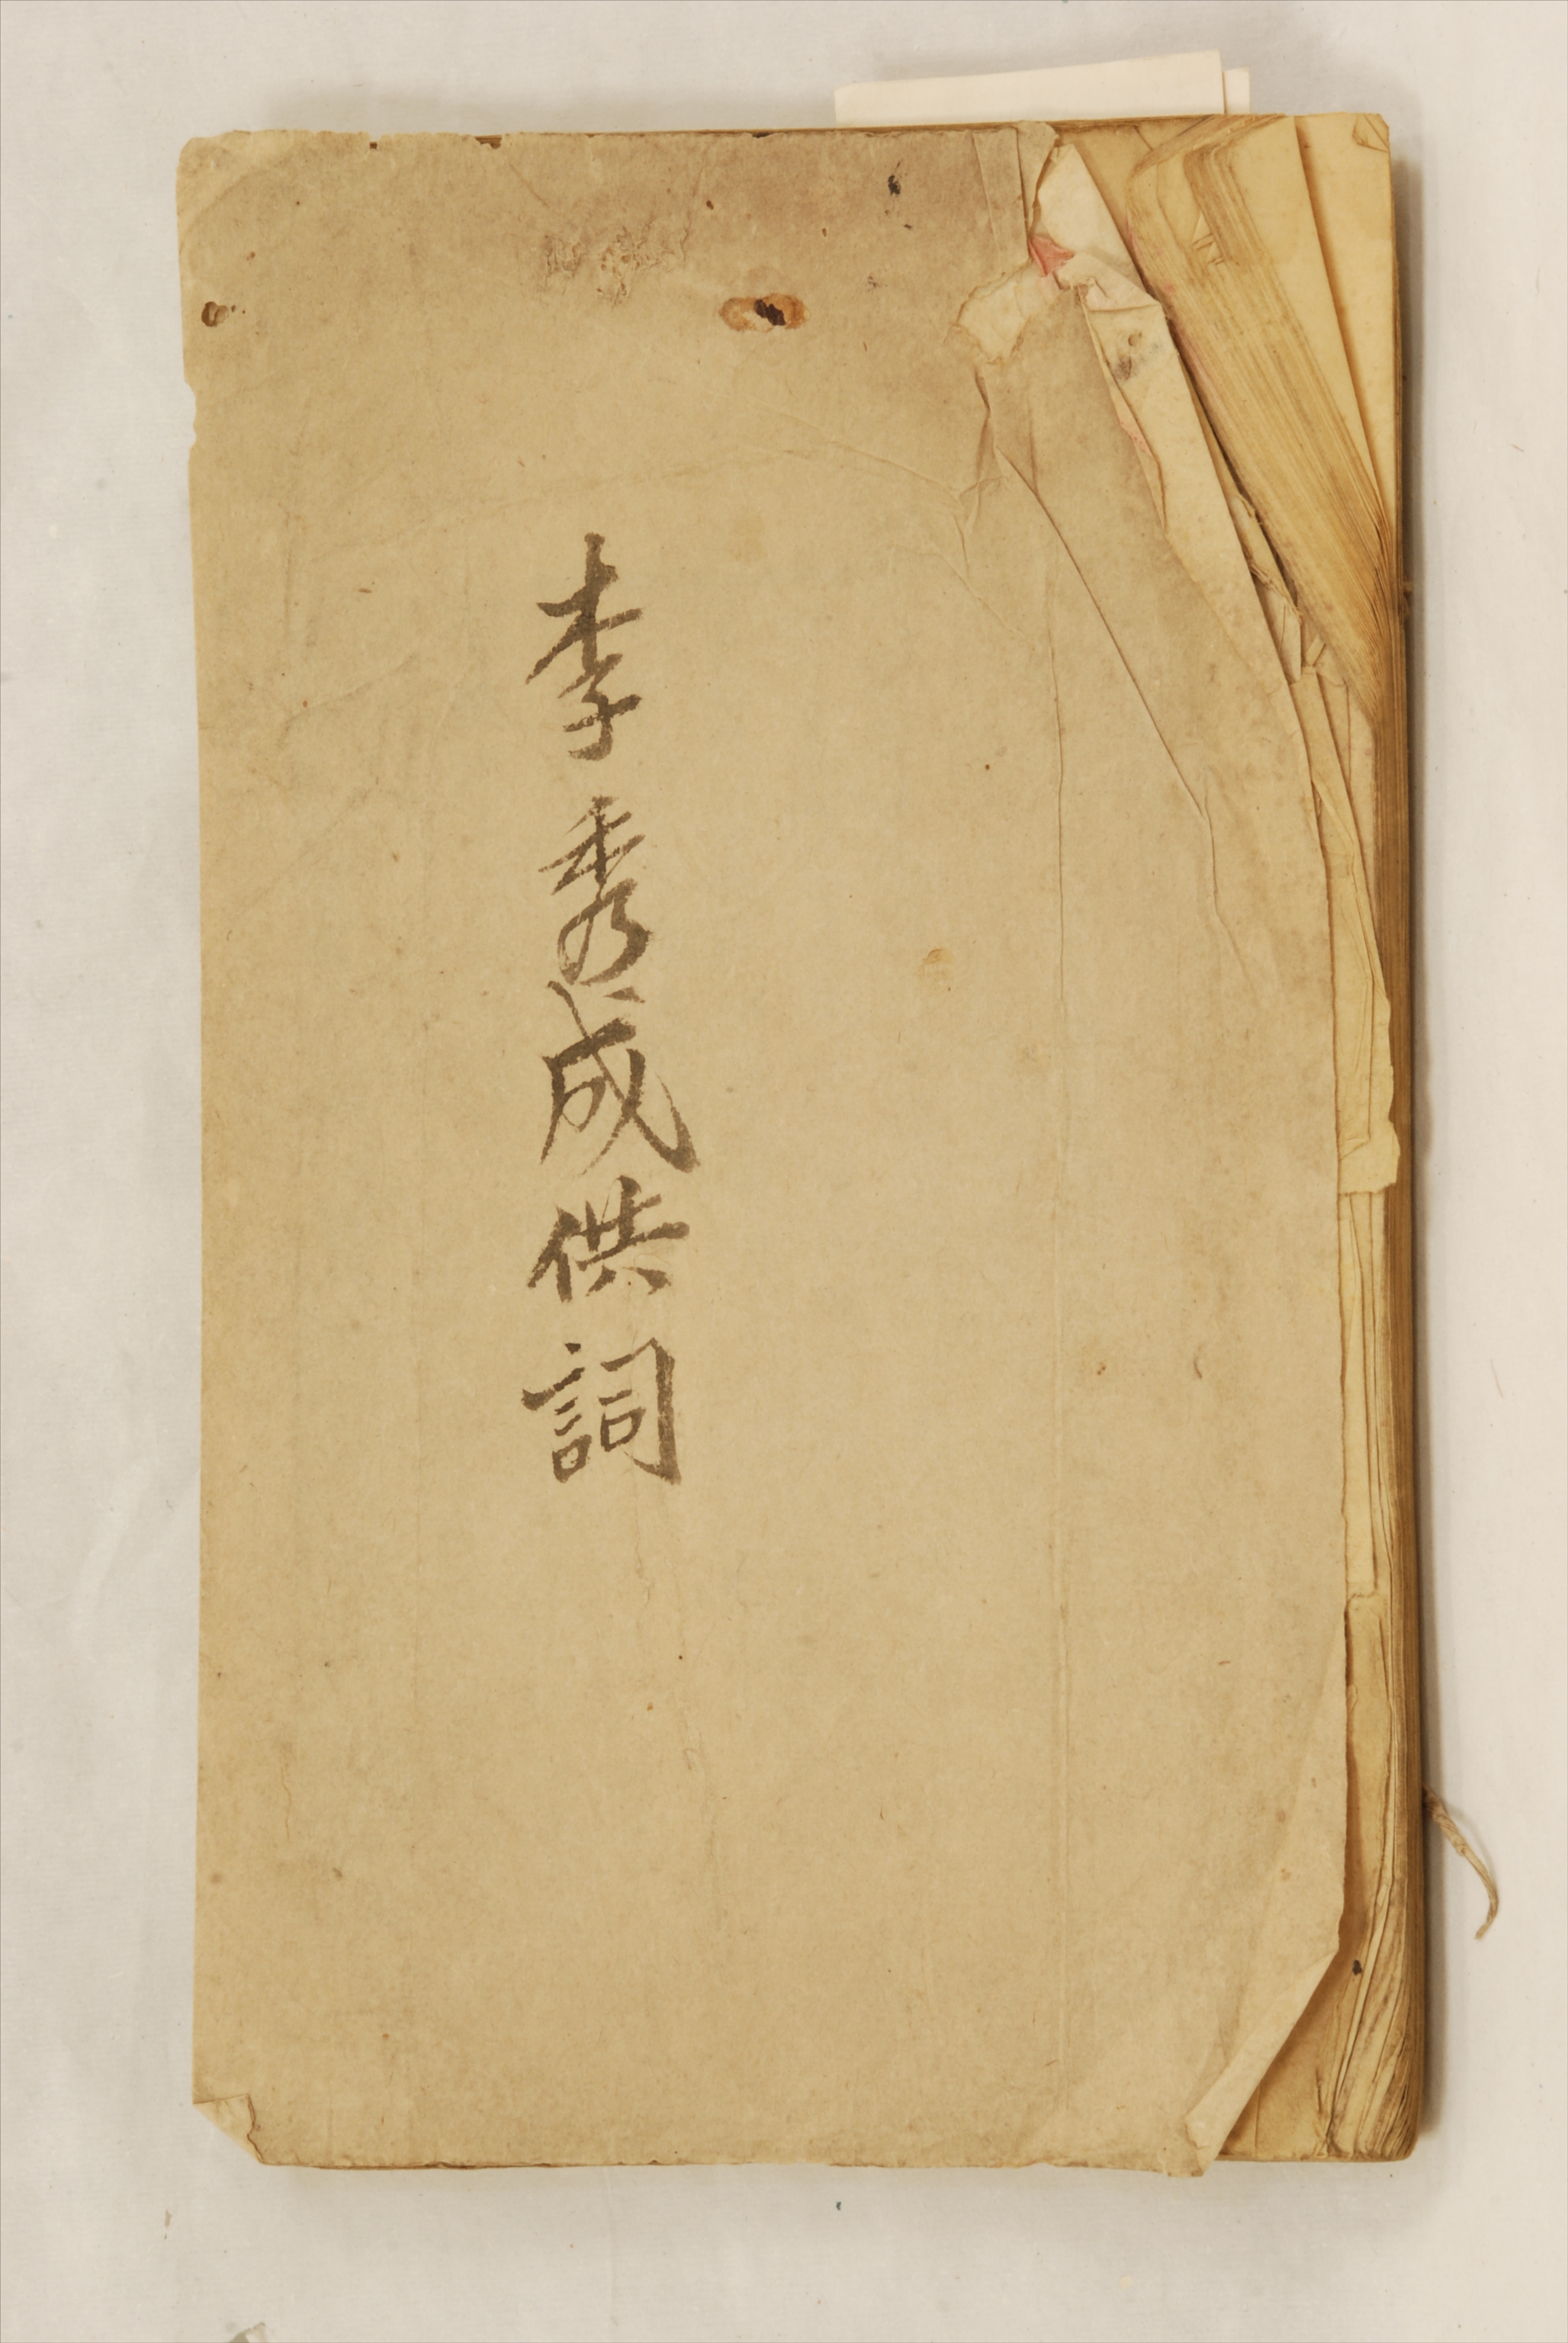 李秀成供詞